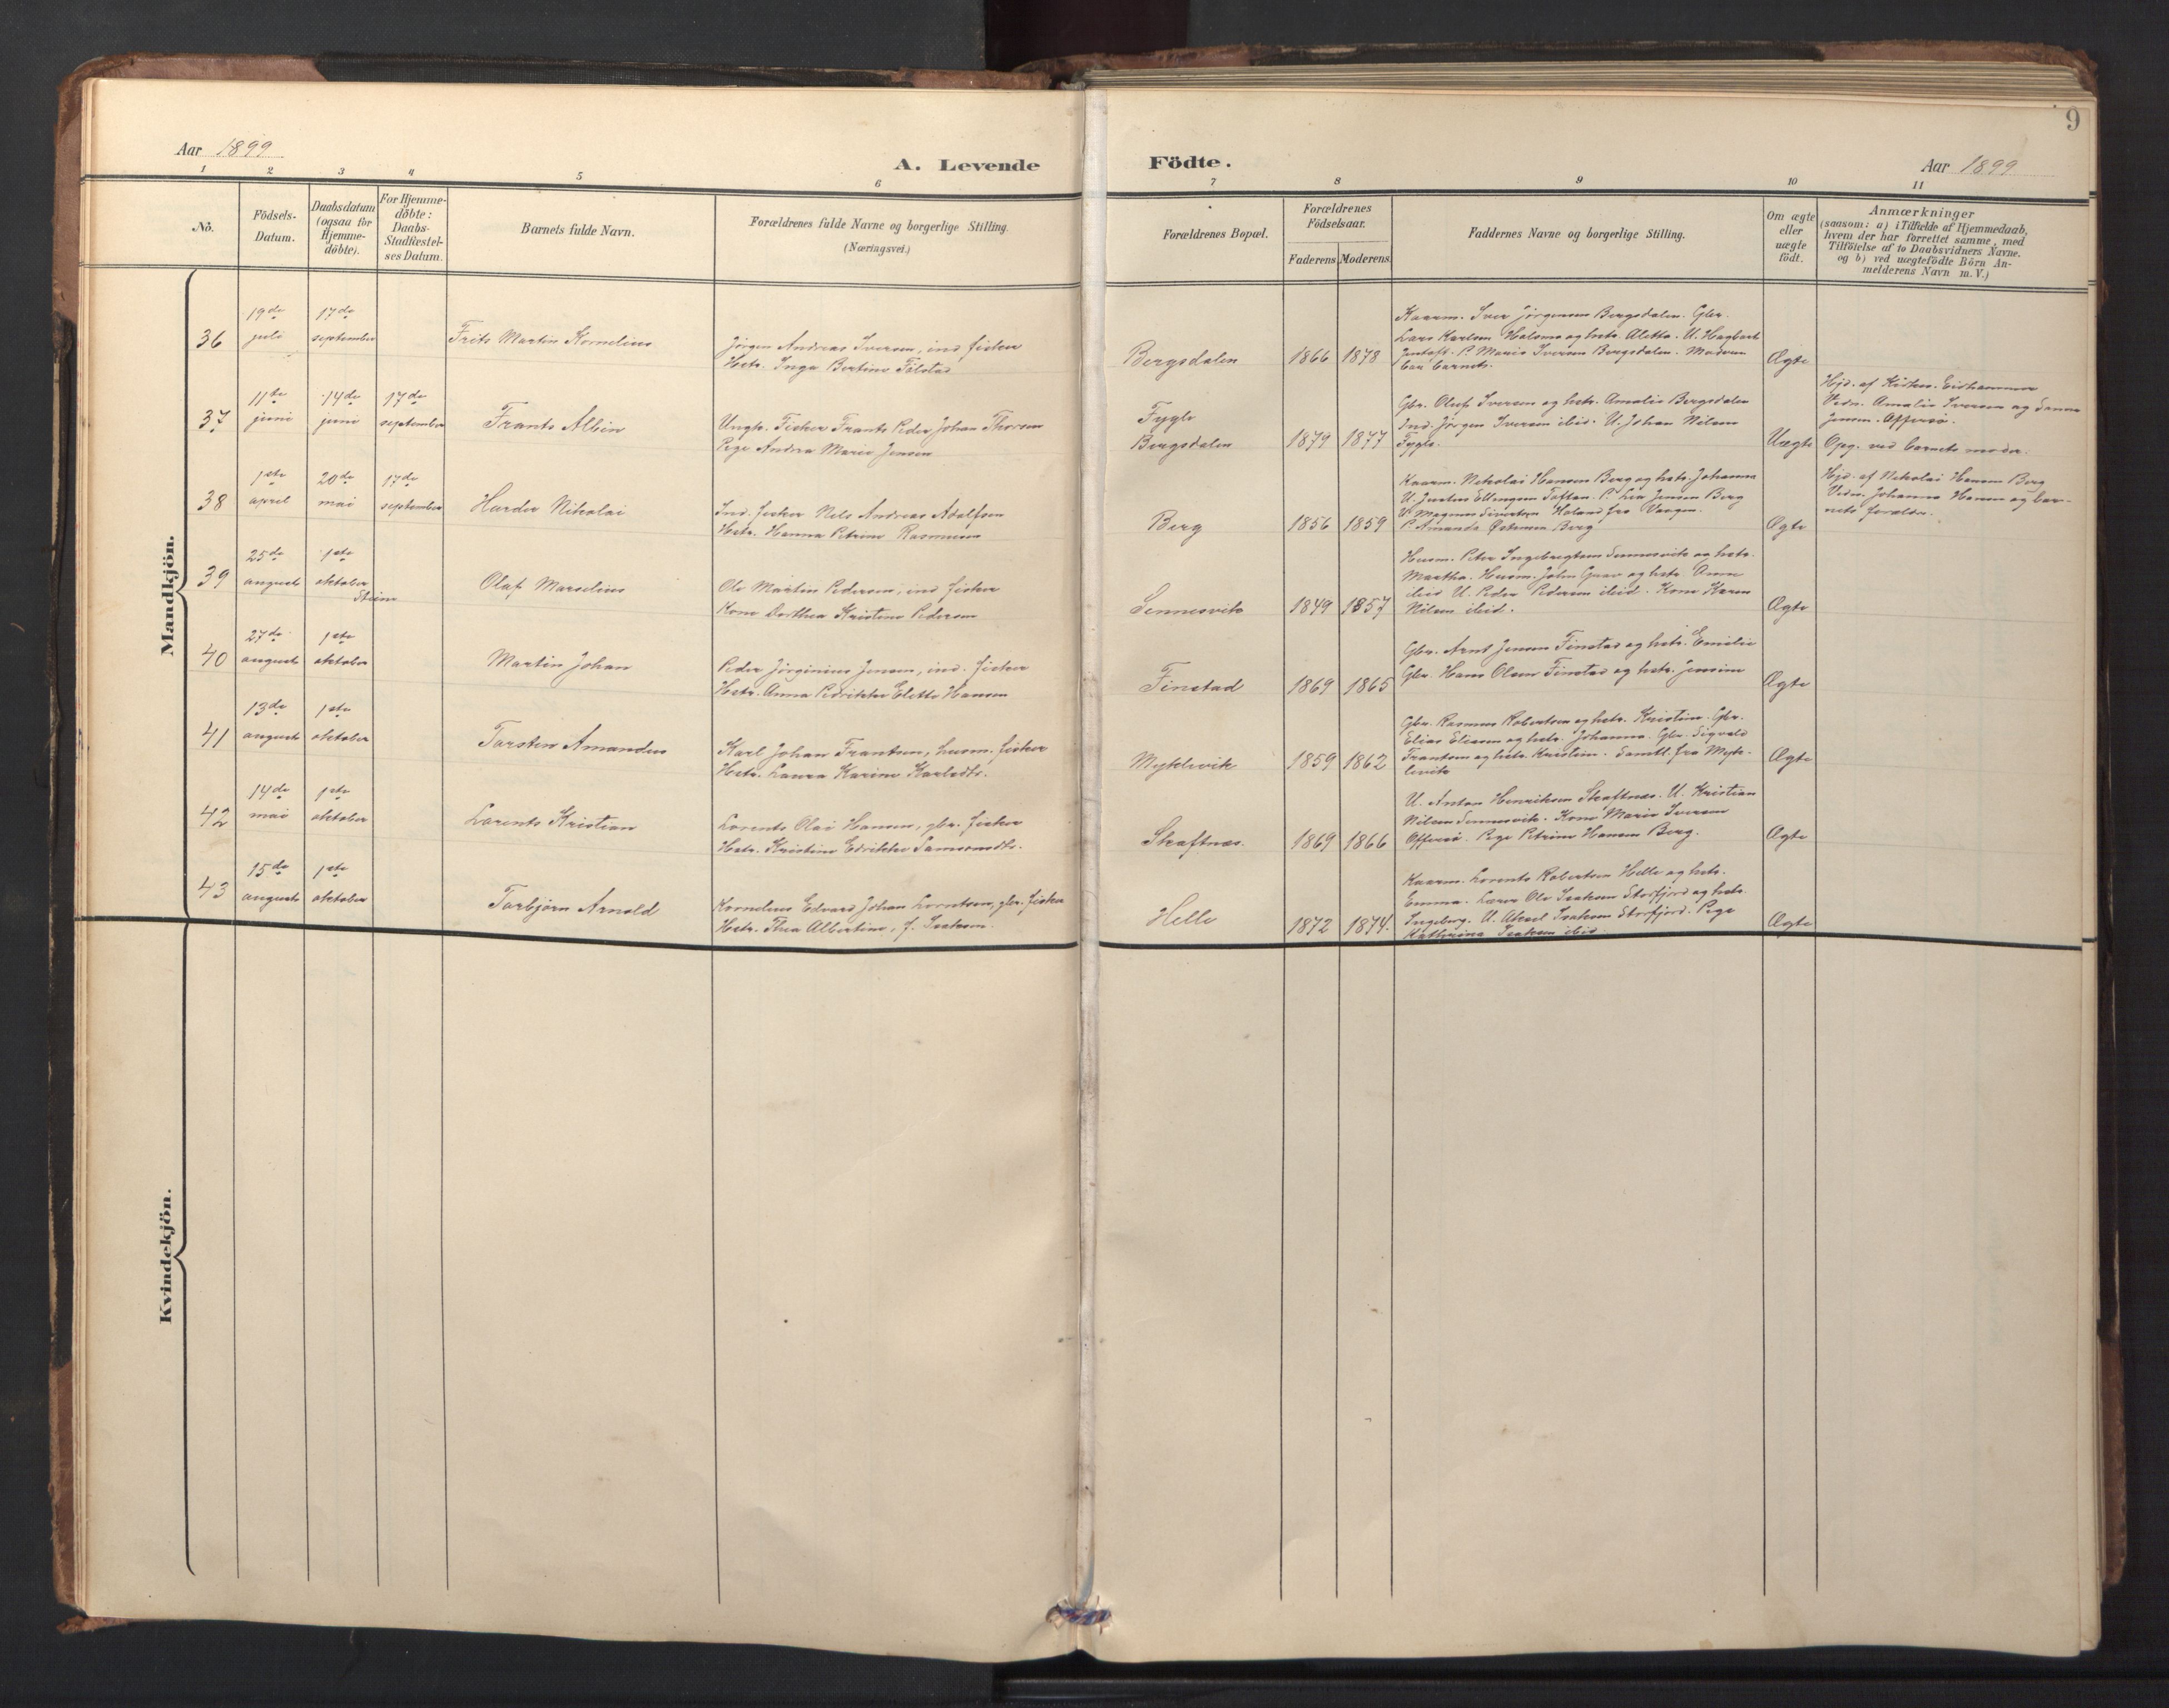 9
Aar 1899
A. Levende Födte.
Aar 1899
1 2 3 4 5 6 7 8 9 10 11
No.
Födsels-
Datum.
Daabsdatum
(ogsaa for
Hjemme-
döbte).
For Hjemme-
döbte:
Daabs-
Stadfæstel-
ses Datum.
Barnets fulde Navn.
Forældrenes fulde Navne og borgerlige Stilling.
(Næringsvei.)
Forældrenes Bopæl.
Forældrenes
Födselsaar.
Faderens Moderens.
Faddernes Navne og borgerlige Stilling.
Om ægte
eller
uægte
födt.
Anmærkninger
(saasom: a) i Tilfælde af Hjemmedaab,
hvem der har forrettet samme, med
Tilföielse af to Daabsvidners Navne.
og b) ved uægtefödte Börn An-
melderens Navn m.V.)
Mandkjön.
36
19de
juli
17de
september
Frits Martin Kornelius
Jörgen Andreas Iversen, ind. fisker
Hstr. Inga Bertine Tilstad
Bergsdalen
1866 1878
Kaarm. Iver Jörgensen Bergsdalen. Gbr.
Lars Karlsen Holsmo og hstr. Aletta. U. Hagbart
Gustafs. P. Marie Iversen Bergsdalen. Moderen
bar barnet.
Ægte
37
11te
juni
14de
juni
17de
september
Frants Albin
Ungk. Fisker Frants Peder Johan Thorsen
Pige Andrea Marie Jensen
Fygle
Bergsdalen
1879 1877
Gbr. Oluf Iversen og hstr. Amalie Bergsdalen
Ind. Jörgen Iversen ibid. U. Johan Nilsen
Fygle.
Uægte
Hjd. af Kirkes. Eidhammer
Vidn. Amalie Iversen og Hanna
Jensen. Offersö.
Opg. ved barnets moder.
38
1ste
april
20de
mai
17de
september
Hurder Nikolai
Ind. fisker Nils Andreas Adolfsen
Hstr. Hanna Petrine Rasmussen
Berg
1856 1859
Kaarm. Nikolai Hansen Berg og hstr. Johanna
U. Justus Ellingsen Toftan. P. Lea Jensen Berg
U. Magnus Sivertsen Holand fra Vangen.
P. Amanda Østensen Berg
Ægte
Hjd. af Nikolai Hansen Berg
Vidn. Johanna Hansen og bar-
nets forældr.
39
25de
august
1ste
oktober
Steine
Olaf Marselius
Ole Martin Pedersen, ind. fisker
Kone Dorthea Kristine Pedersen
Sennesvik
1849 1857
Husm. Peter Ingebregtsen Sennesvik og hstr.
Martha. Husm. John Grav og hstr. Anne
ibid. U. Peder Pedersen ibid. Kone Karen
Nilsen ibid.
Ægte
40
27de
august
1ste
oktober
Martin Johan
Peder Jörginius Jensen, ind. fisker
Hstr. Anna Fredrikke Elette Hansen
Finstad
1869 1865
Gbr. Arnt Jensen Finstad og hstr. Emilie
Gbr. Hans Olsen Finstad og hstr. Jensine
Ægte
41
13de
august
1ste
oktober
Torsten Amandus
Karl Johan Frantsen, husm. fisker
Hstr. Laura Karine Karlsdtr.
Myklevik
1859 1862
Gbr. Rasmus Robertsen og hstr. Kristine. Gbr.
Elias Eliasen og hstr. Johanna. Gbr. Sigvald
Frantsen og hstr. Kristine. Samtl. fra Myk-
levik
Ægte
42
14de
mai
1ste
oktober
Lorents Kristian
Lorents Olai Hansen, gbr. fisker
Hstr. Kristine Edrikke Samsonsdtr.
Skaftnes.
1869 1866
U. Anton Henriksen Skaftnes. U. Kristian
Nilsen Sennesvik. Kone Marie Iversen
Offersö. Pige Petrine Hansen Berg.
Ægte
43
15de
august
1ste
oktober
Torbjörn Arnold
Kornelius Edvard Johan Lorntsen, gbr. fisker
Hstr. Thea Albertine, f. Isaksen.
Helle
1872 1874.
Kaarm. Lorents Robertsen Helle og hstr.
Emma. Lærer Ole Isaksen Storfjord og hstr.
Ingeborg. U. Aksel Isaksen Storfjord. Pige
Kathrina Isaksen ibid.
Ægte
Kvindekjön.